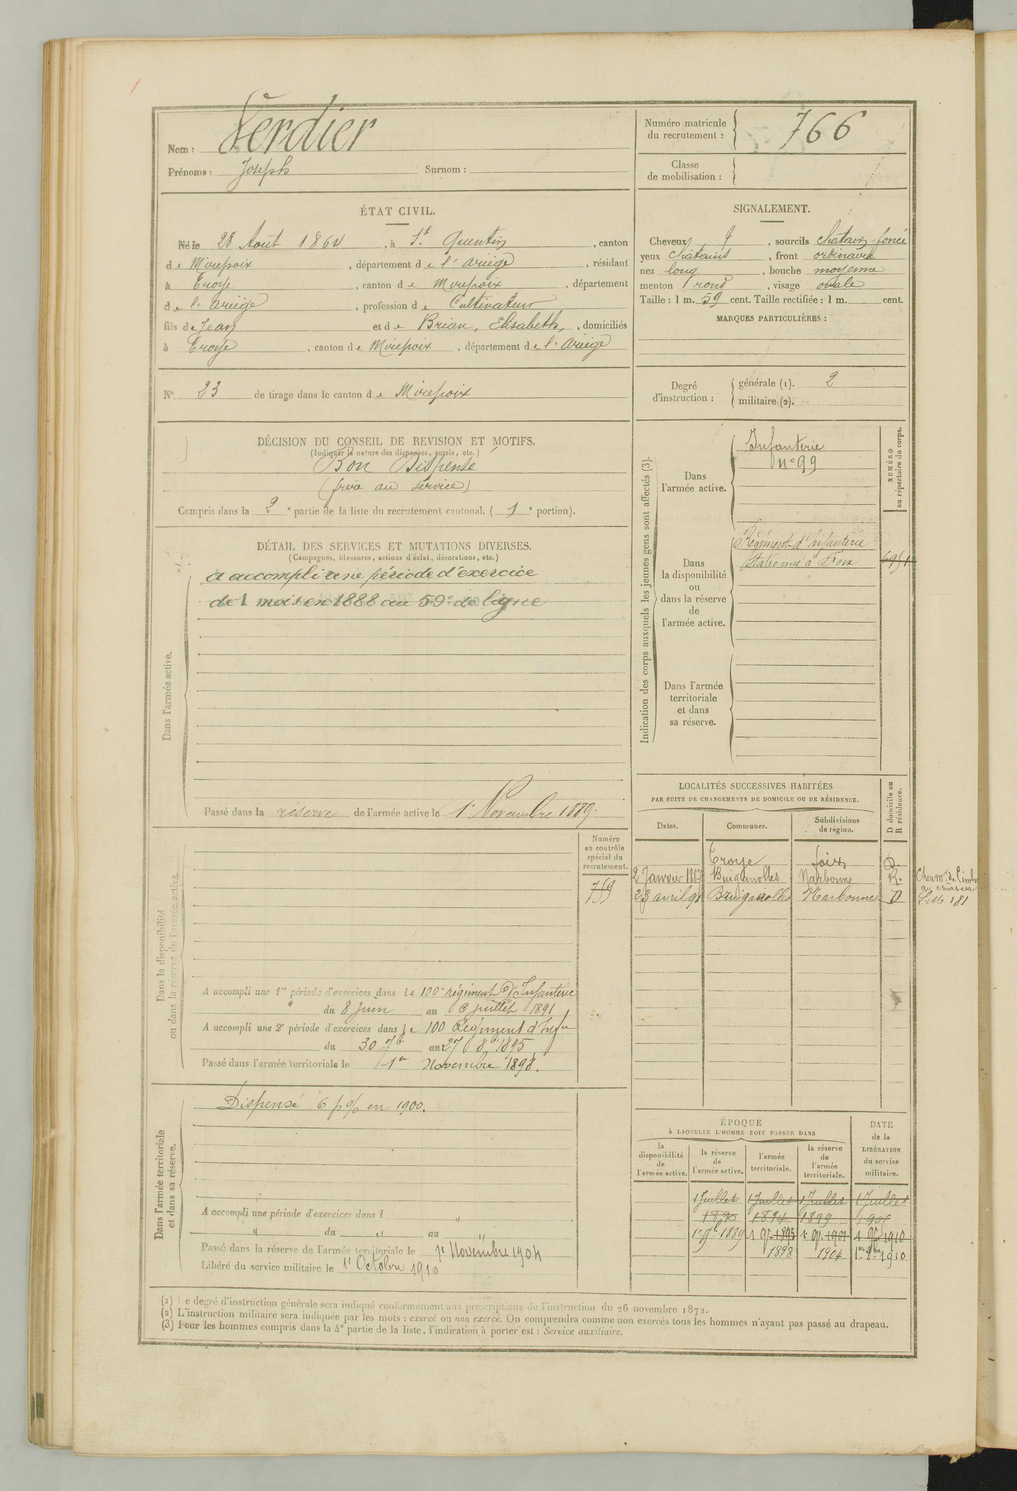 Nom : Verdier
Prénoms : Joseph Surnom :
Numéro matricule du recrutement : 766
Classe de mobilisation :
ÉTAT CIVIL.
Né le 28 Août 1864, à St Quentin, canton
de Mirepoix, département de l'Ariège, résidant
à Troye, canton de Mirepoix, département
de l'Ariège, profession de Cultivateur
fils de Jean et de Brian, Elisabeth, domiciliés
à Troye, canton de Mirepoix, département de l'Ariège
N° 23 de tirage dans le canton de Mirepoix
SIGNALEMENT.
Cheveux, sourcils chatain foncé
yeux chatains, front ordinaire
nez long, bouche moyenne
menton rond, visage ovale
Taille : 1 m. 59 cent. Taille rectifiée : 1 m. cent.
MARQUES PARTICULIÈRES :
Degré d'instruction : générale (1). 2
militaire (2).
DÉCISION DU CONSEIL DE REVISION ET MOTIFS.
(Indiquer la nature des dispenses, sursis, etc.)
Bon Dispensé
(frère au service)
Compris dans la 2e partie de la liste du recrutement cantonal. (1e portion).
DÉTAIL DES SERVICES ET MUTATIONS DIVERSES.
(Campagnes, blessures, actions d'éclat, décorations, etc.)
Dans l'armée active.
a accompli une période d'exercice
de 1 mois en 1888 au 59e de ligne
Passé dans la reserve de l'armée active le 1er Novembre 1889.
Indication des corps auxquels les jeunes gens sont affectés (3).
NUMÉRO au répertoire du corps.
Dans l'armée active.
Infanterie
N° 99
Dans la disponibilité ou dans la réserve de l'armée active.
Régiment d'Infanterie
stationné à Foix
Dans l'armée territoriale et dans sa réserve.
LOCALITÉS SUCCESSIVES HABITÉES
PAR SUITE DE CHANGEMENTS DE DOMICILE OU DE RÉSIDENCE.
Dates. Communes. Subdivisions de région. D domicile ou R résidence.
Troye foix D.
2 Janvier Narbonne R.
23 avril 91 Narbonne D
Numéro au contrôle spécial du recrutement.
769
Dans la disponibilité ou dans la réserve de l'armée active.
A accompli une 1re période d'exercices dans le 100e régiment d'Infanterie
du 8 juin au 6 juillet 1891
A accompli une 2e période d'exercices dans le 100 Régiment d'Infie
du 30 7bre au 27 8bre 1895
Passé dans l'armée territoriale le 1er Novembre 1898.
Dans l'armée territoriale et dans sa réserve.
Dispensé 6 p% en 1900.
A accompli une période d'exercices dans l "
" du " au "
Passé dans la réserve de l'armée territoriale le 1er Novembre 1904
Libéré du service militaire le 1er Octobre 1910
ÉPOQUE
À LAQUELLE L'HOMME DOIT PASSER DANS
DATE de la LIBÉRATION du service militaire.
la disponibilité de l'armée active. la réserve de l'armée active. l'armée territoriale. la réserve de l'armée territoriale.
1 Juillet 1 Juillet 1 Juillet 1 Juillet
1890 1894 1899
1898 1904 1910
(1) Le degré d'instruction générale sera indiqué conformément aux prescriptions de l'instruction du 26 novembre 1872.
(2) L'instruction militaire sera indiquée par les mots : exercé ou non exercé. On comprendra comme non exercés tous les hommes n'ayant pas passé au drapeau.
(3) Pour les hommes compris dans la 4e partie de la liste, l'indication à porter est : Service auxiliaire.